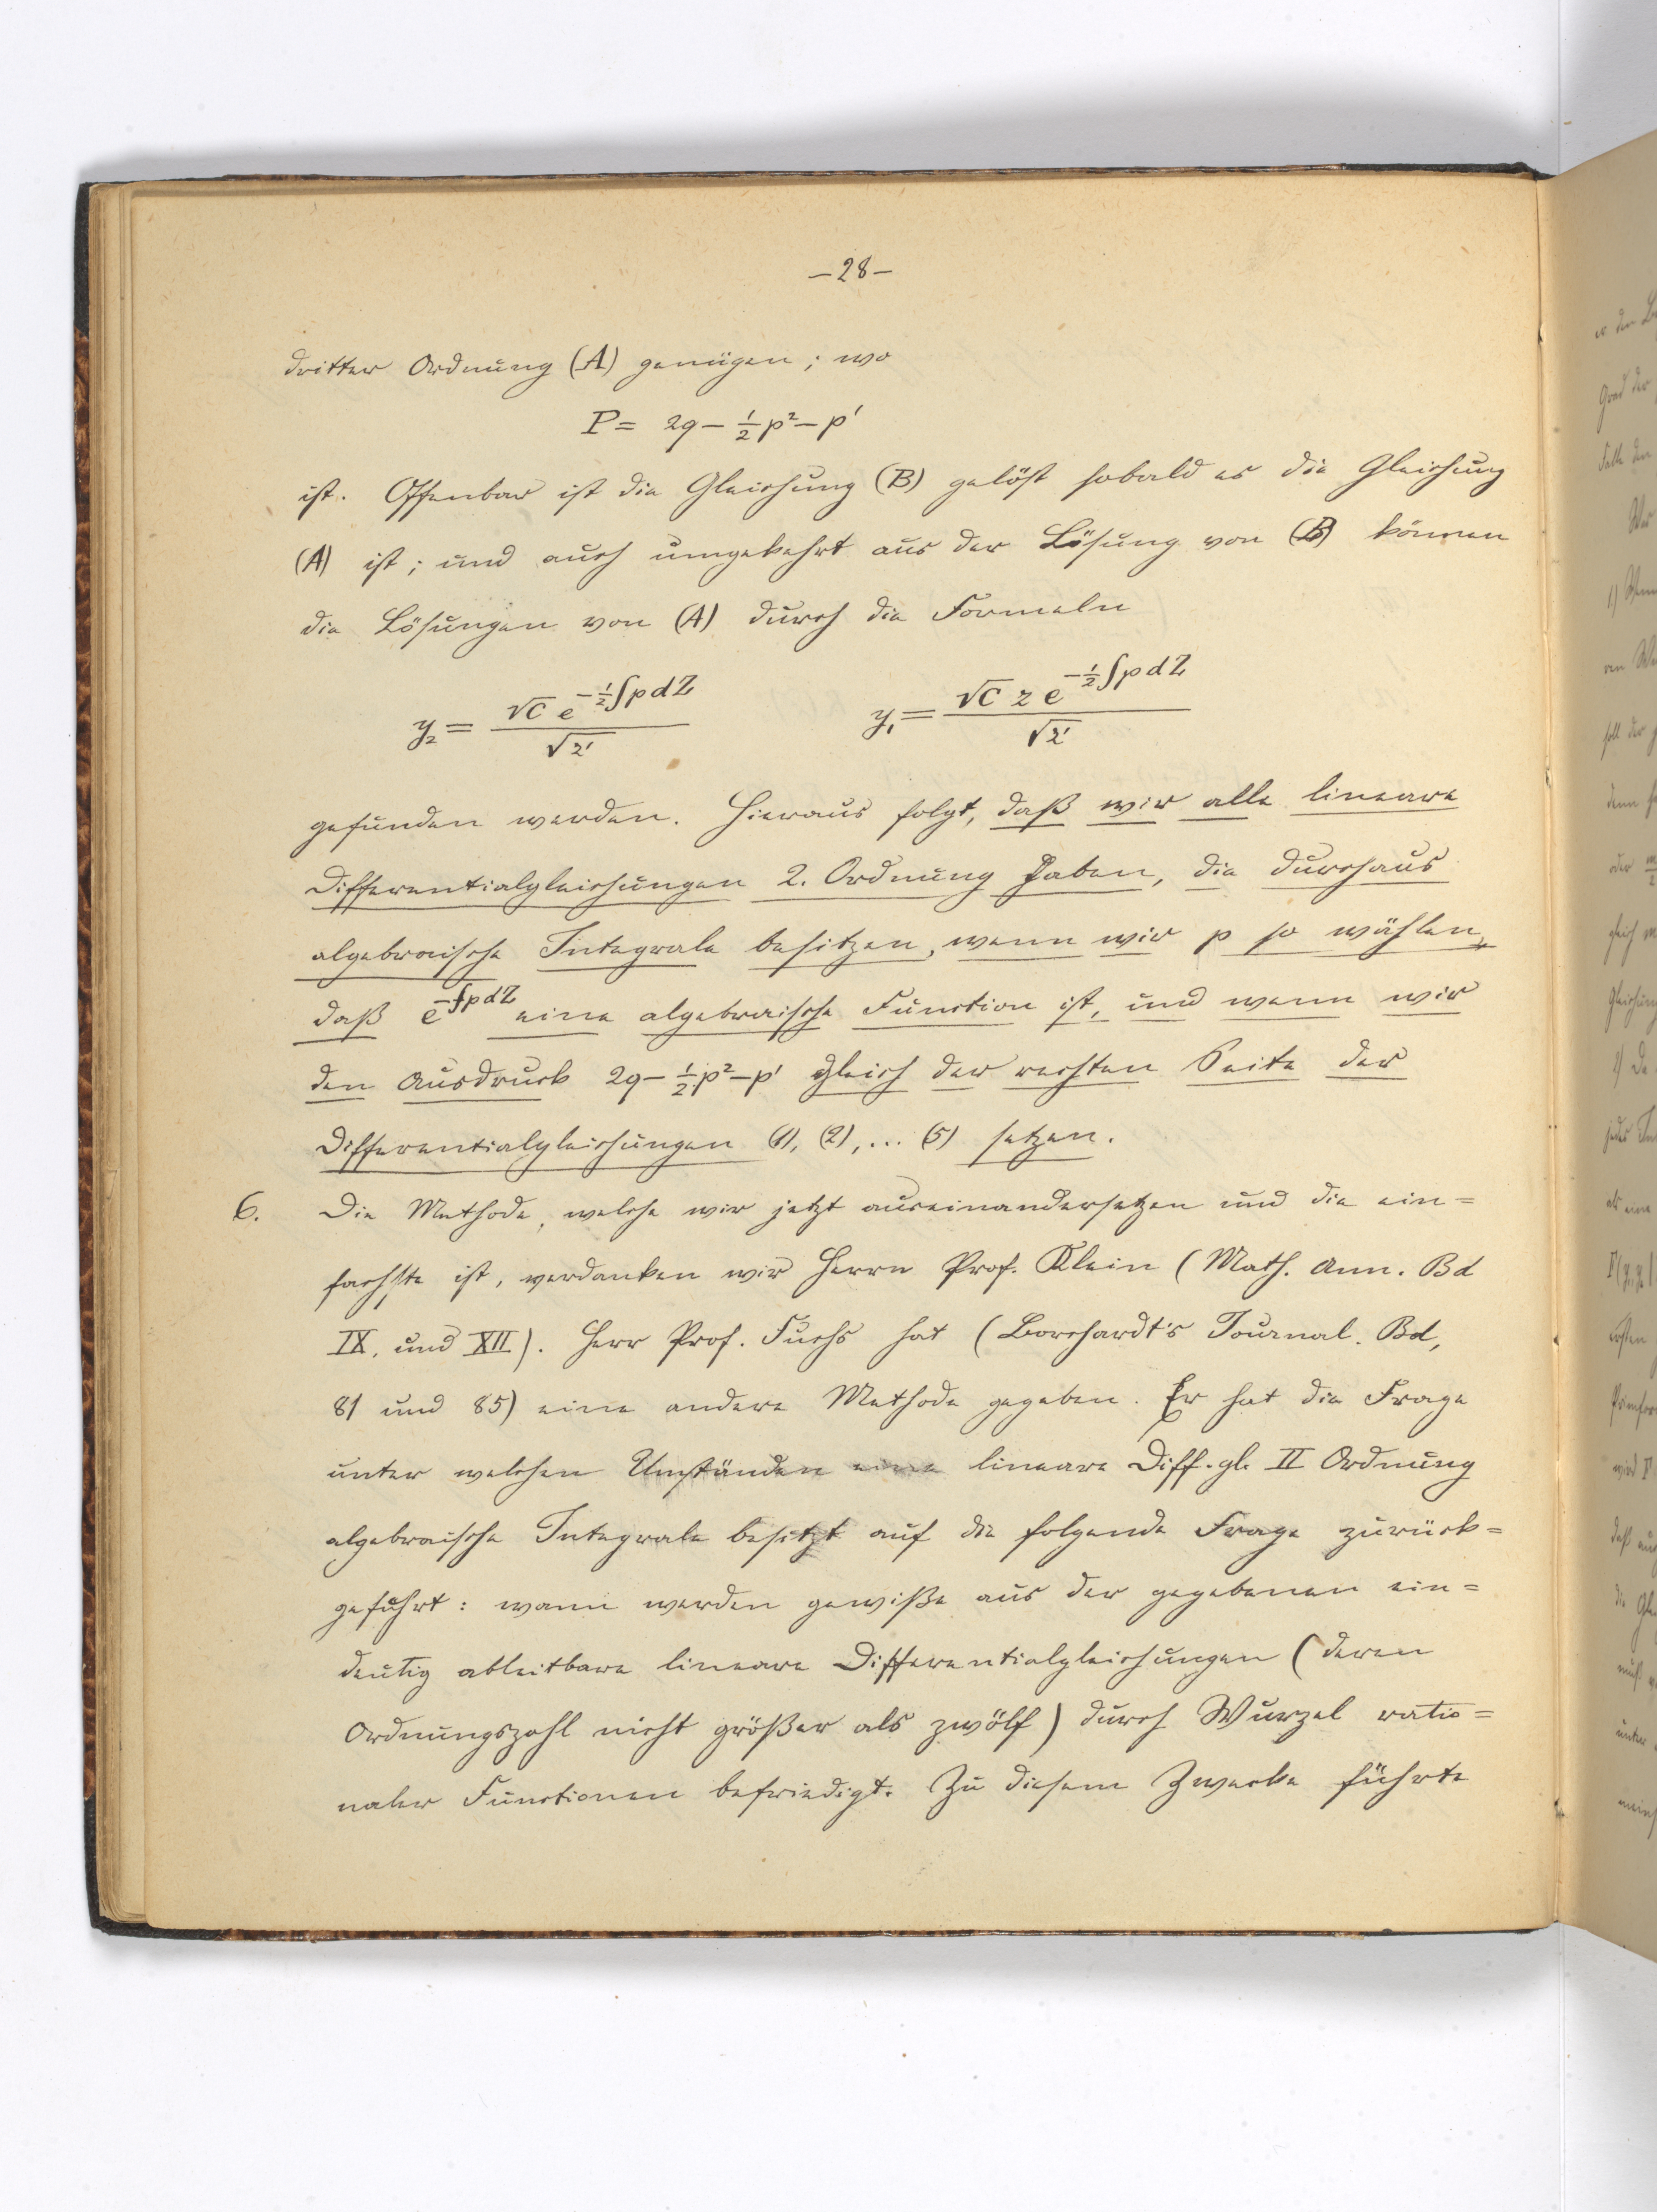 —28—
dritter Ordnung (A) genügen; wo
P = 2q − ½p² − p'
ist. Offenbar ist die Gleichung (B) gelöst sobald es die Gleichung
(A) ist; und auch umgekehrt aus der Lösung von (B) können
die Lösungen von (A) durch die Formeln
y₂ = √C e^{−½∫pdZ} / √z'   y₁ = √C z e^{−½∫pdZ} / √z'
gefunden werden. Hieraus folgt, daß wir alle lineare
Differentialgleichungen 2. Ordnung haben, die durchaus
algebraische Integrale besitzen, wenn wir p so wählen,
daß e^{−∫pdZ} eine algebraische Function ist, und wenn wir
den Ausdruck 2q − ½p² − p' gleich der rechten Seite der
Differentialgleichungen (1), (2), ... (5) setzen.
6. Die Methode, welche wir jetzt auseinandersetzen und die ein=
fachste ist, verdanken wir Herrn Prof. Klein (Math. Ann. Bd
IX. und XII). Herr Prof. Fuchs hat (Borchardt's Journal. Bd,
81 und 85) eine andere Methode gegeben. Er hat die Frage
unter welchen Umständen eine lineare Diff. gl. II Ordnung
algebraische Integrale besitzt auf die folgende Frage zurück=
geführt: wann werden gewiße aus der gegebenen ein=
deutig ableitbare lineare Differentialgleichungen (deren
Ordnungszahl nicht größer als zwölf) durch Wurzel ratio=
naler Functionen befriedigt. Zu diesem Zwecke führte